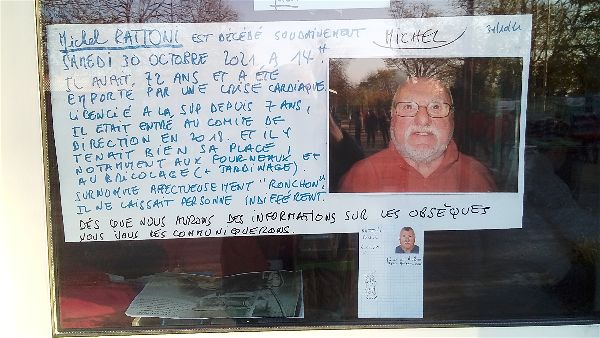 Michel RATTONI EST DÉCÉDÉ SOUDAINEMENT
SAMEDI 30 OCTOBRE 2021, A 14H.
IL AVAIT 72 ANS ET A ÉTÉ
EMPORTE PAR UNE CRISE CARDIAQUE.
LICENCIÉ A LA SUP DEPUIS 7 ANS,
IL ETAIT ENTRE AU COMITE DE
DIRECTION EN 2018. ET IL Y
TENAIT BIEN SA PLACE,
NOTAMMENT AUX FOURNEAUX ET
AU BRICOLAGE (+ JARDINAGE).
SURNOMME AFFECTUEUSEMENT "RONCHON",
IL NE LAISSAIT PERSONNE INDIFFÉRENT.
DÈS QUE NOUS AURONS DES INFORMATIONS SUR LES OBSÈQUES
NOUS VOUS LES COMMUNIQUERONS.
MICHEL